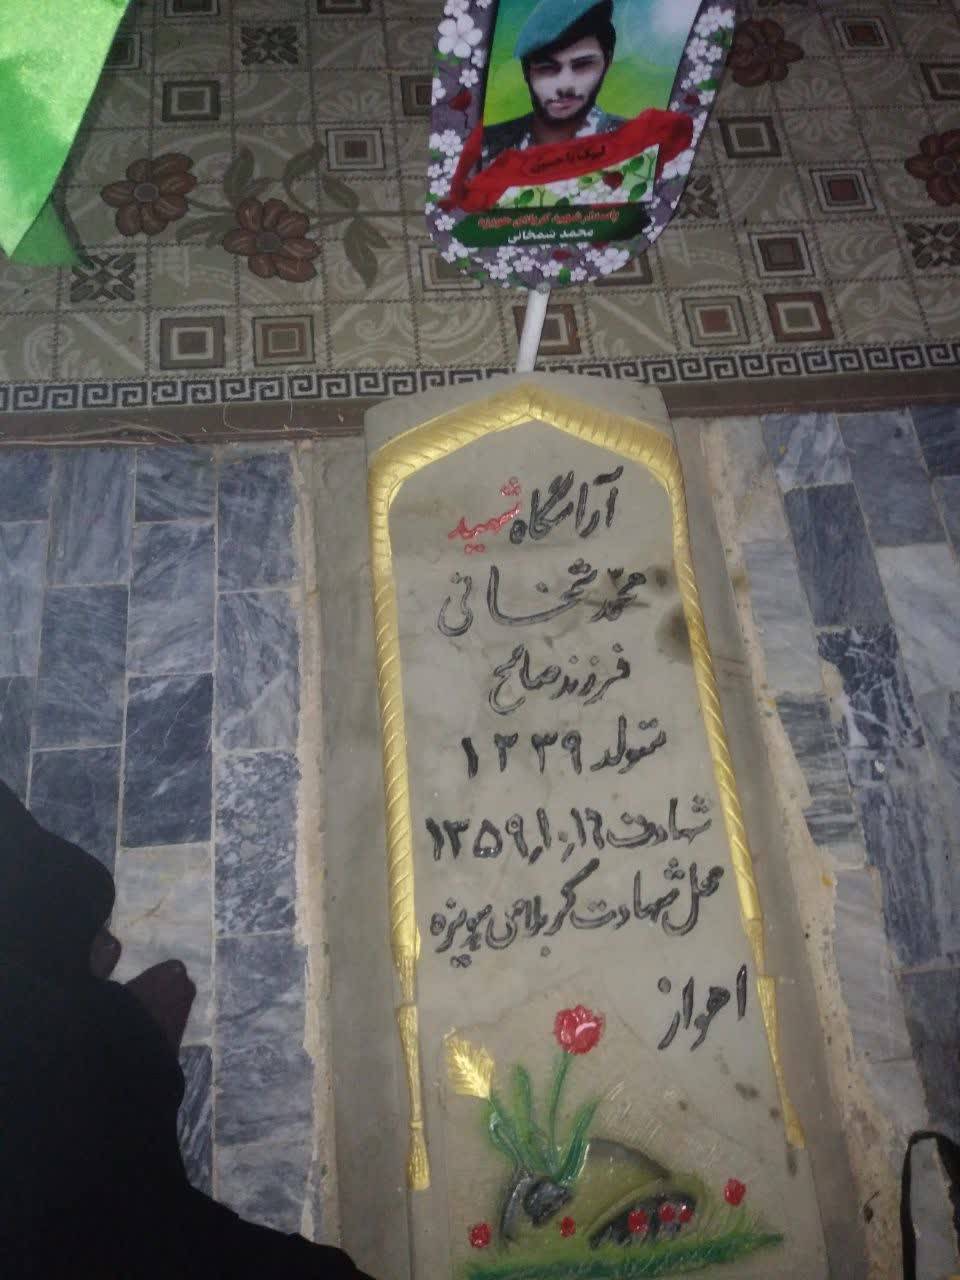 لبیک یا حسین
پاسدار شهید کربلای هویزه
محمد شمخانی
آرامگاه شهید
محمد شمخانی
فرزند صالح
متولد ۱۳۳۹
شهادت ۱۳۵۹/۱۰/۱۶
محل شهادت کربلای هویزه
اهواز